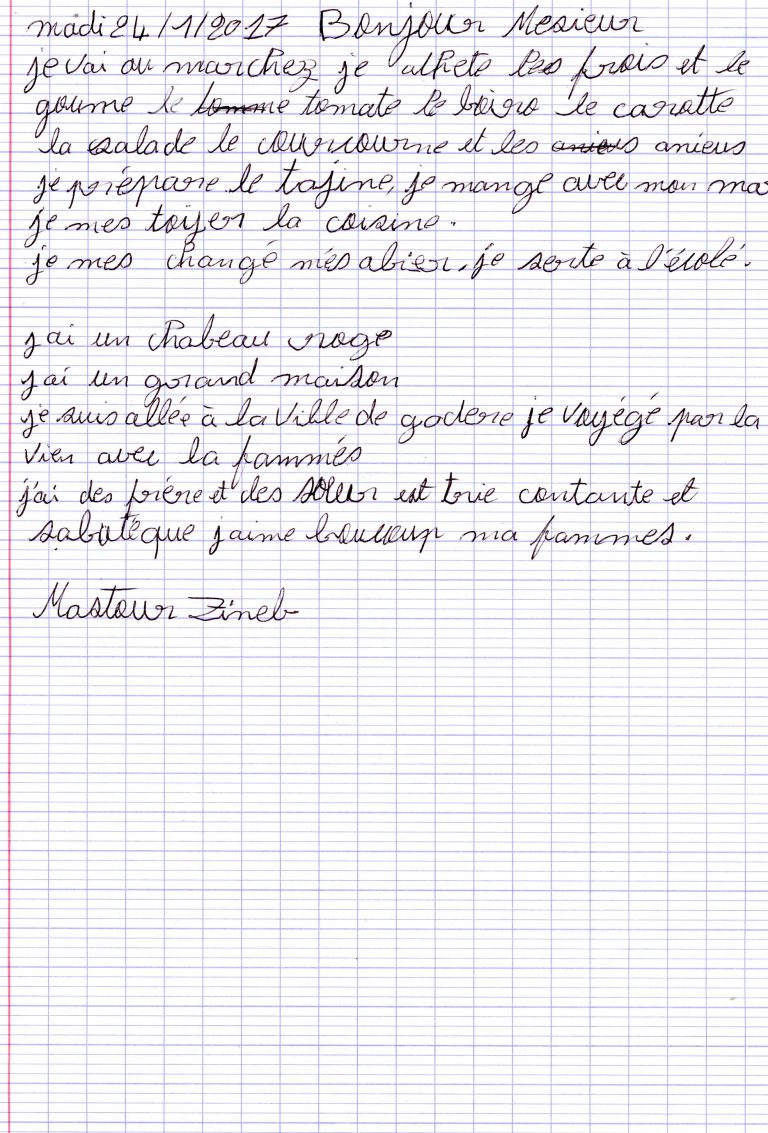 madi 24/1/2017 Bonjour Mesieur
je vai au marchez je alhete les frois et le
goume le tomate le boiro le carotte
la salade le courcourne et les anieus
je prépare le tajine, je mange avec mon ma
je mes toiyer la coisine.
je mes changé més abier. je sorte à l'écolé.
j ai un chabeau roge
j ai un gorand maison
je suis allée à la Ville de godere je voyégé par la
vien avec la fammés
j'ai des frére et des soeur est trie contante et
sabutéque j aime boucoup ma fammes.
Mastour Zineb